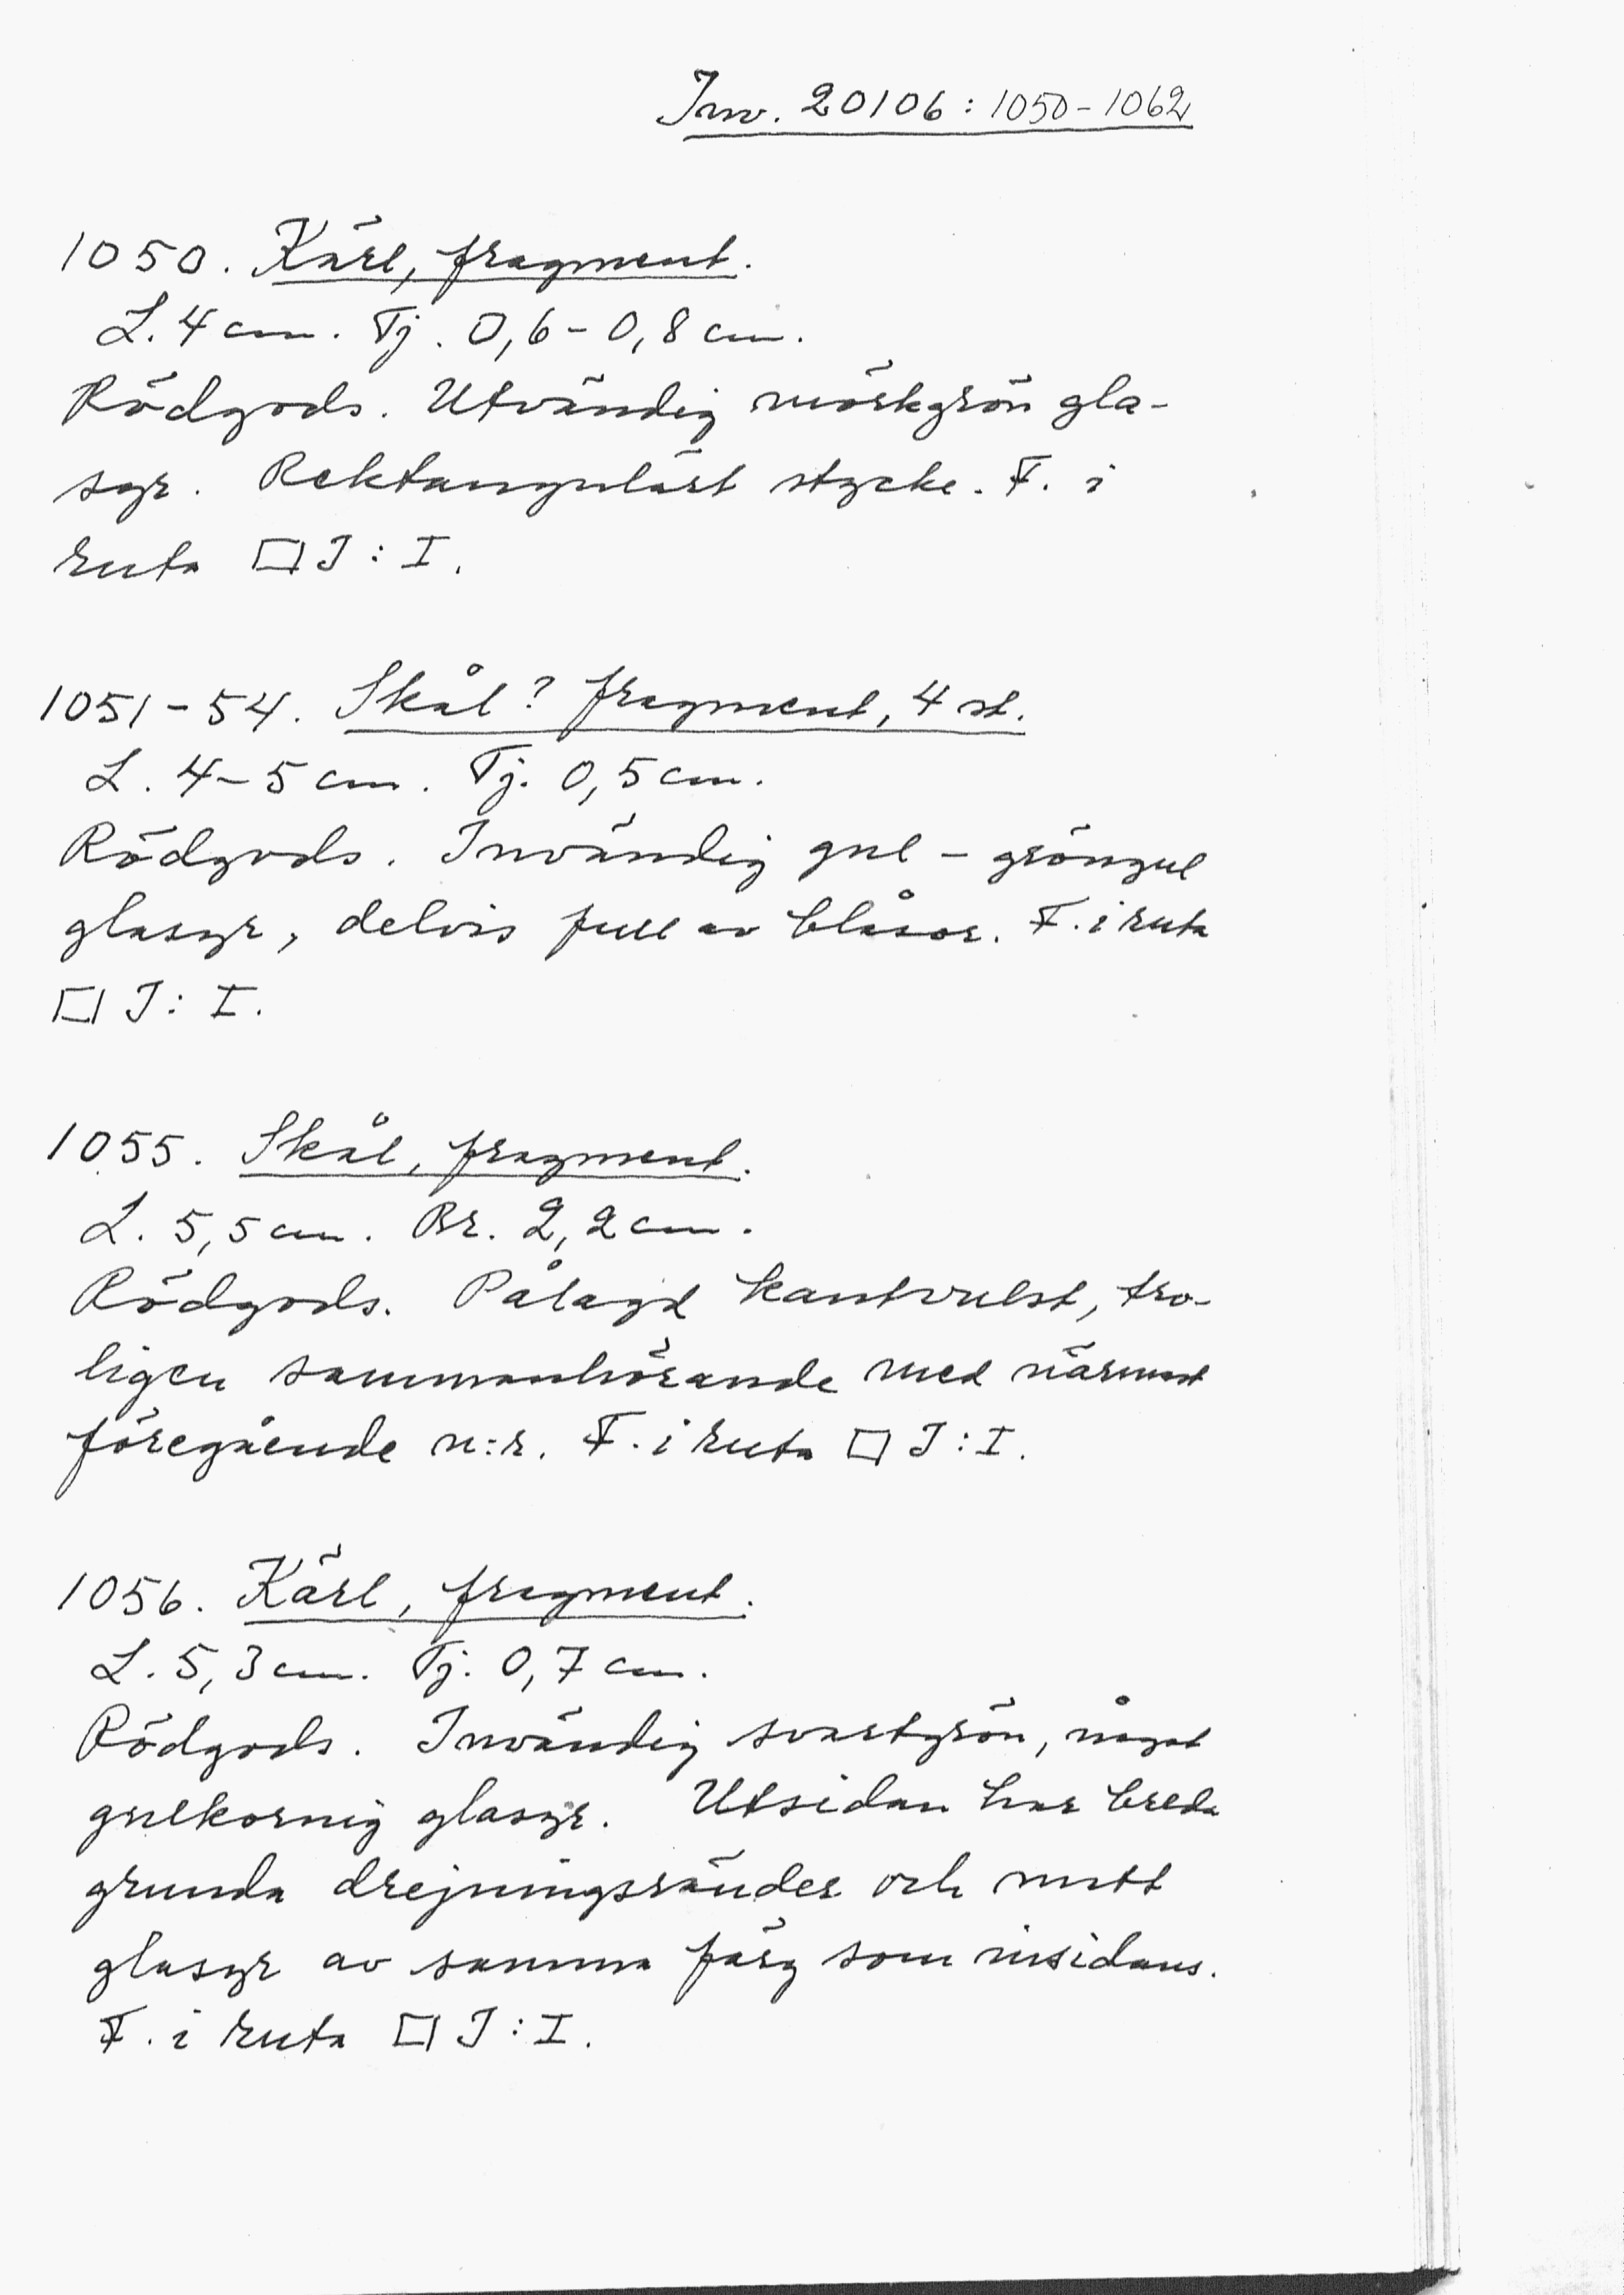 Inv. 20106:1050-1062
1050. Kärl, fragment.
L. 4 cm. Tj. 0,6-0,8 cm.
Rödgods. Utvändig mörkgrön gla-
syr. Rektangulärt stycke. F. i
ruta □ J : I.
1051-54. Skål? fragment, 4 st.
L. 4-5 cm. Tj. 0,5 cm.
Rödgods. Invändig gul - gröngul
glasyr, delvis full av blåsor. F. i ruta
□ J : I.
1055. Skål, fragment.
L. 5,5 cm. Br. 2,2 cm.
Rödgods. Pålagd kantvulst, tro-
ligen sammanhörande med närmast
föregående n:r. F. i ruta □ J : I.
1056. Kärl, fragment.
L. 5,3 cm. Tj. 0,7 cm.
Rödgods. Invändig svartgrön, något
gulkornig glasyr. Utsidan har breda
grunda drejningsränder och matt
glasyr av samma färg som insidans.
F. i ruta □ J : I.